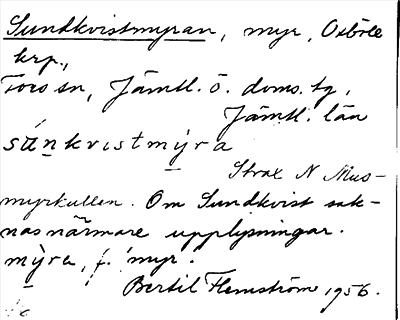 Sundkvistmyran, myr, Oxböle
krp.,
Fors sn, Jämtl. ö. doms. tg,
Jämtl. län
súnkvistmỳra
Strax N Mus-
myrkullen. Om Sundkvist sak-
nas närmare upplysningar.
mỳra, f. 'myr'.
Bertil Flemström 1956.